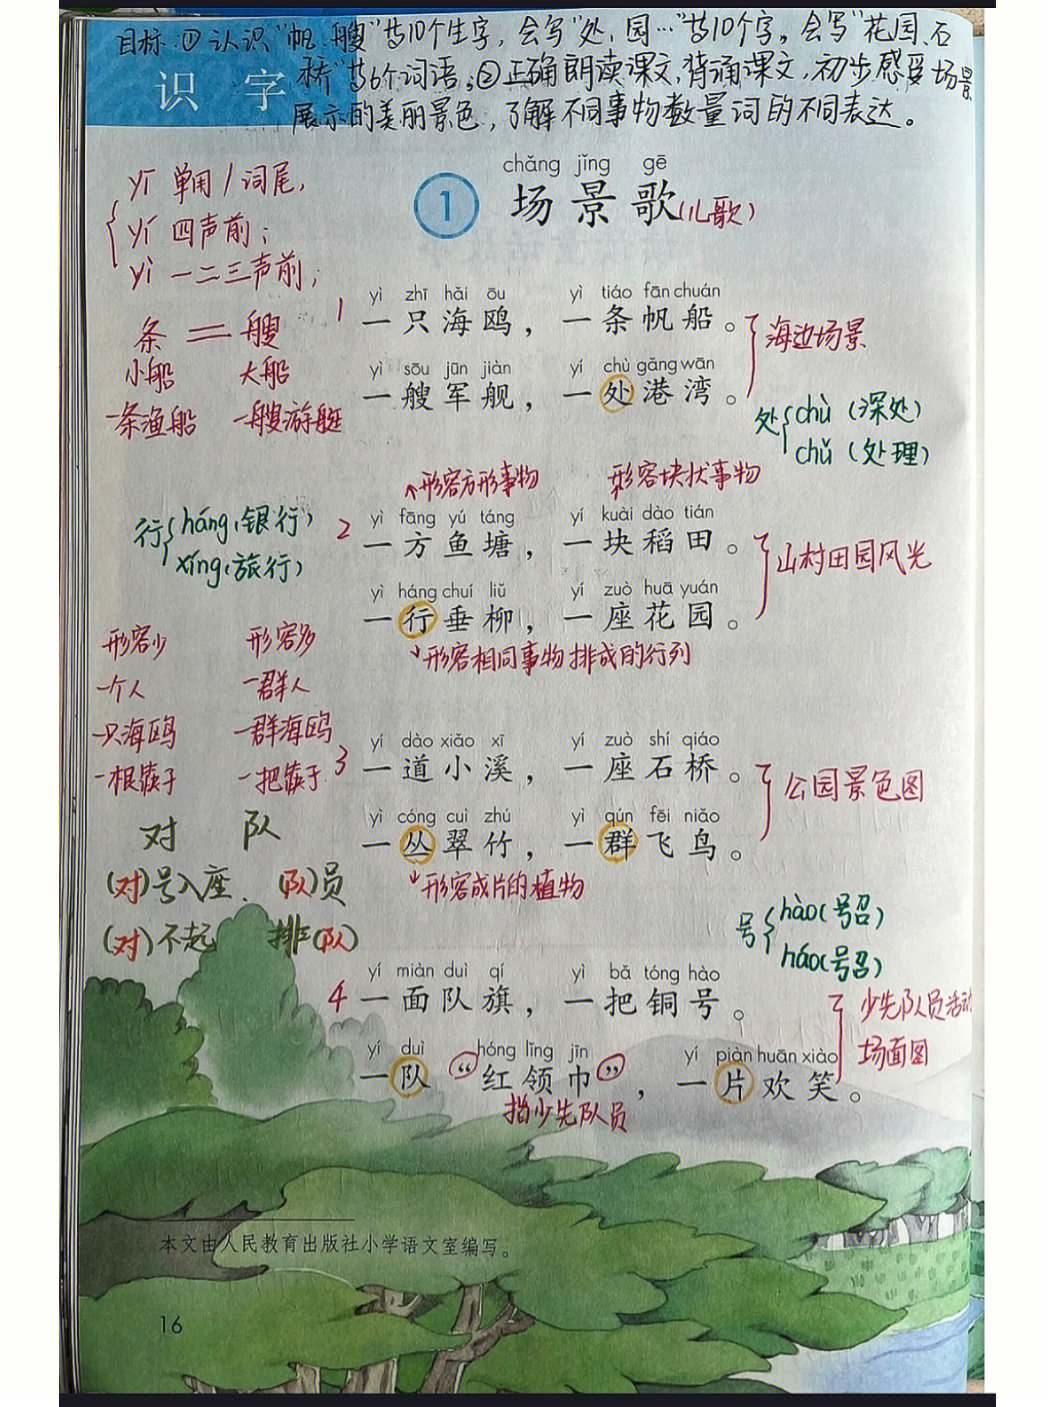 目标:①认识“帆、艘”等10个生字,会写“处,园…”等10个字。会写“花园、石
桥”等6个词语;②正确朗读课文,背诵课文,初步感受场景
展示的美丽景色,了解不同事物数量词的不同表达。
识 字
chǎng jǐng gē
1 场景歌(儿歌)
yī 单用/词尾,
yí 四声前;
yì 一二三声前;
yì zhī hǎi ōu yì tiáo fān chuán
1 一只海鸥,一条帆船。
海边场景
yì sōu jūn jiàn yí chù gǎng wān
一艘军舰,一处港湾。
条 = 艘
小船 大船
一条渔船 一艘游艇
处 chù (深处)
chǔ (处理)
↗形容方形事物 形容块状事物
行 háng(银行)
xíng(旅行)
yì fāng yú táng yí kuài dào tián
2 一方鱼塘,一块稻田。
山村田园风光
yì háng chuí liǔ yí zuò huā yuán
一行垂柳,一座花园。
↓形容相同事物排成的行列
形容少 形容多
一个人 一群人
一只海鸥 一群海鸥
一根筷子 一把筷子
yí dào xiǎo xī yí zuò shí qiáo
3 一道小溪,一座石桥。
公园景色图
yì cóng cuì zhú yì qún fēi niǎo
一丛翠竹,一群飞鸟。
↓形容成片的植物
对 队
(对)号入座. (队)员
(对)不起 排(队)
号 hào(号召)
háo(号召)
yí miàn duì qí yì bǎ tóng hào
4 一面队旗,一把铜号。
少先队员活动
场面图
yí duì hóng lǐng jīn yí piàn huān xiào
一队“红领巾”,一片欢笑。
指少先队员
本文由人民教育出版社小学语文室编写。
16